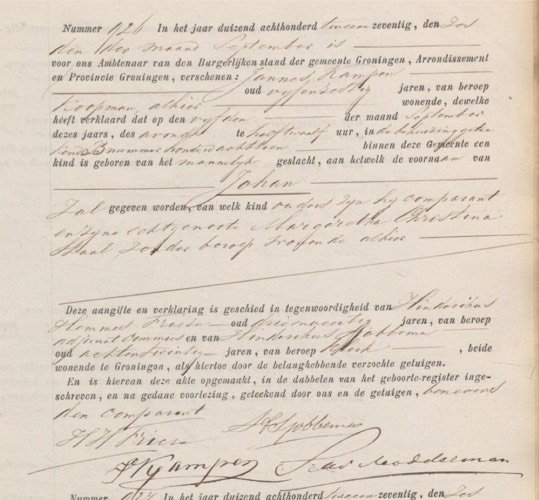 Nummer 926 In het jaar duizend achthonderd twee en zeventig, den zes
den der maand September is
voor ons Ambtenaar van den Burgerlijken stand der gemeente Groningen, Arrondissement
en Provincie Groningen, verschenen: Jannes Kampen
oud vyfendertig jaren, van beroep
Koopman, alhier wonende, dewelke
heeft verklaard dat op den vyfden der maand September
dezes jaars, des avonds te half twaalf uur, in de behuizing geteekend
B nummer honderdachttien binnen deze Gemeente een
kind is geboren van het mannelyk geslacht, aan hetwelk de voornaam van
Johan
zal gegeven worden, van welk kind ouders zyn hy comparant
en zyne echtgenoote Margaretha Christina
Staal zonder beroep wonende alhier
Deze aangifte en verklaring is geschied in tegenwoordigheid van Hinderikus
Hommes Friese oud jaren, van beroep
adjunct commies en van Hinderikus Hobbema
oud achtendertig jaren, van beroep klerk, beide
wonende te Groningen, als hiertoe door de belanghebbende verzochte getuigen.
En is hiervan deze akte opgemaakt, in de dubbelen van het geboorte-register inge-
schreven, en na gedane voorlezing, geteekend door ons en de getuigen, benevens
den comparant
HH Friese H Hobbema
J Kampen Modderman
Nummer 927 In het jaar duizend achthonderd twee en zeventig, den zes